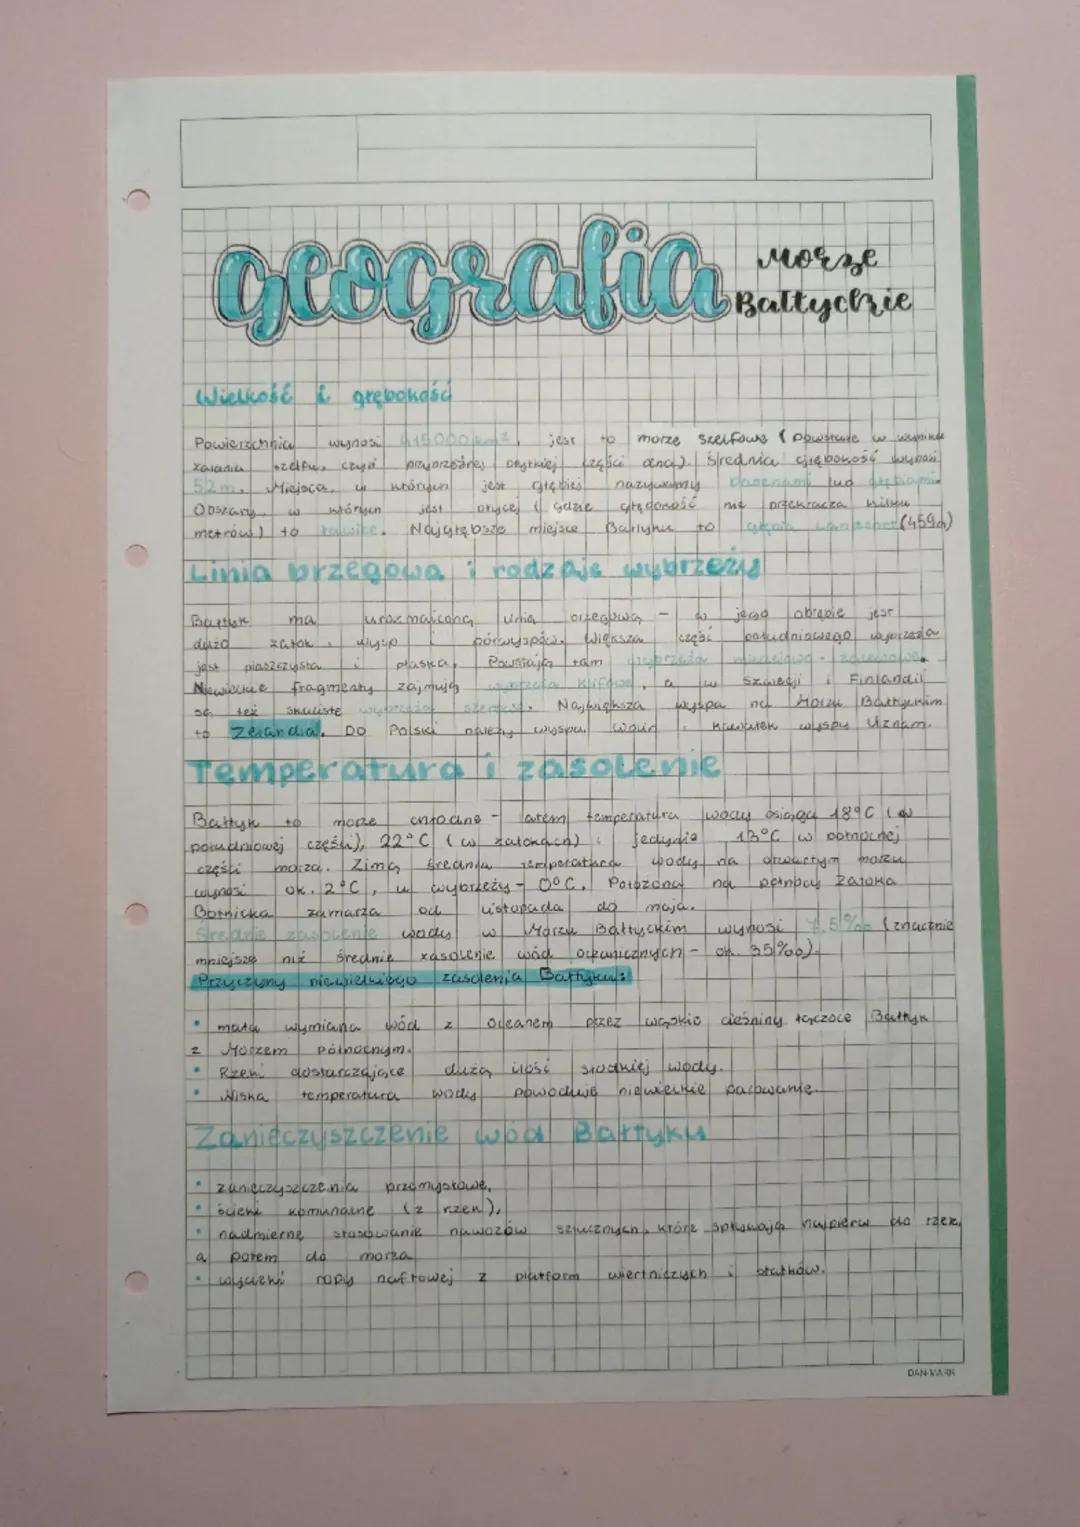 geografia
Morze
Bałtyckie
Wielkość i głębokość
Powierzchnia wynosi 415000 km², jest to morze szelfowe (powstałe w wyniku
zalania szelfu, czyli przybrzeżnej płytkiej części dna). Średnia głębokość wynosi
52m. Miejsca, w którym jest głębiej nazywamy basenami lub głębiami.
Obszary w którym jest płycej (gdzie głębokość nie przekracza kilku
metrów) to ławice. Najgłębsze miejsce Bałtyku to głębia Landsort (459m)
Linia brzegowa i rodzaje wybrzeży
Bałtyk ma urozmaiconą linię brzegową - w jego obrębie jest
dużo zatok, wysp i półwyspów. Większa część południowego wybrzeża
jest piaszczysta i płaska. Powstają tam wybrzeża mierzejowo-zalewowe.
Niewielkie fragmenty zajmują wybrzeża klifowe, a w Szwecji i Finlandii
są też skaliste wybrzeża szerowe. Największa wyspa na Morzu Bałtyckim
to Zelandia. Do Polski należy wyspa Wolin i kawałek wyspy Uznam.
Temperatura i zasolenie
Bałtyk to morze chłodne - latem temperatura wody osiąga 18°C (w
południowej części), 22°C (w zatokach) i jedynie 13°C w północnej
części morza. Zimą średnia temperatura wody na otwartym morzu
wynosi ok. 2°C, u wybrzeży - 0°C. Położona na północy Zatoka
Botnicka zamarza od listopada do maja.
Średnie zasolenie wody w Morzu Bałtyckim wynosi 7,5‰ (znacznie
mniejsze niż średnie zasolenie wód oceanicznych - ok. 35‰).
Przyczyny niewielkiego zasolenia Bałtyku:
• mała wymiana wód z oceanem przez wąskie cieśniny łączące Bałtyk
z Morzem Północnym.
• Rzeki dostarczające dużą ilość słodkiej wody.
• Niska temperatura wody powoduje niewielkie parowanie.
Zanieczyszczenie wód Bałtyku
• zanieczyszczenia przemysłowe,
• ścieki komunalne (z rzek),
• nadmierne stosowanie nawozów sztucznych, które spływają najpierw do rzek,
a potem do morza
• wycieki ropy naftowej z platform wiertniczych i statków.
DAN-MARK